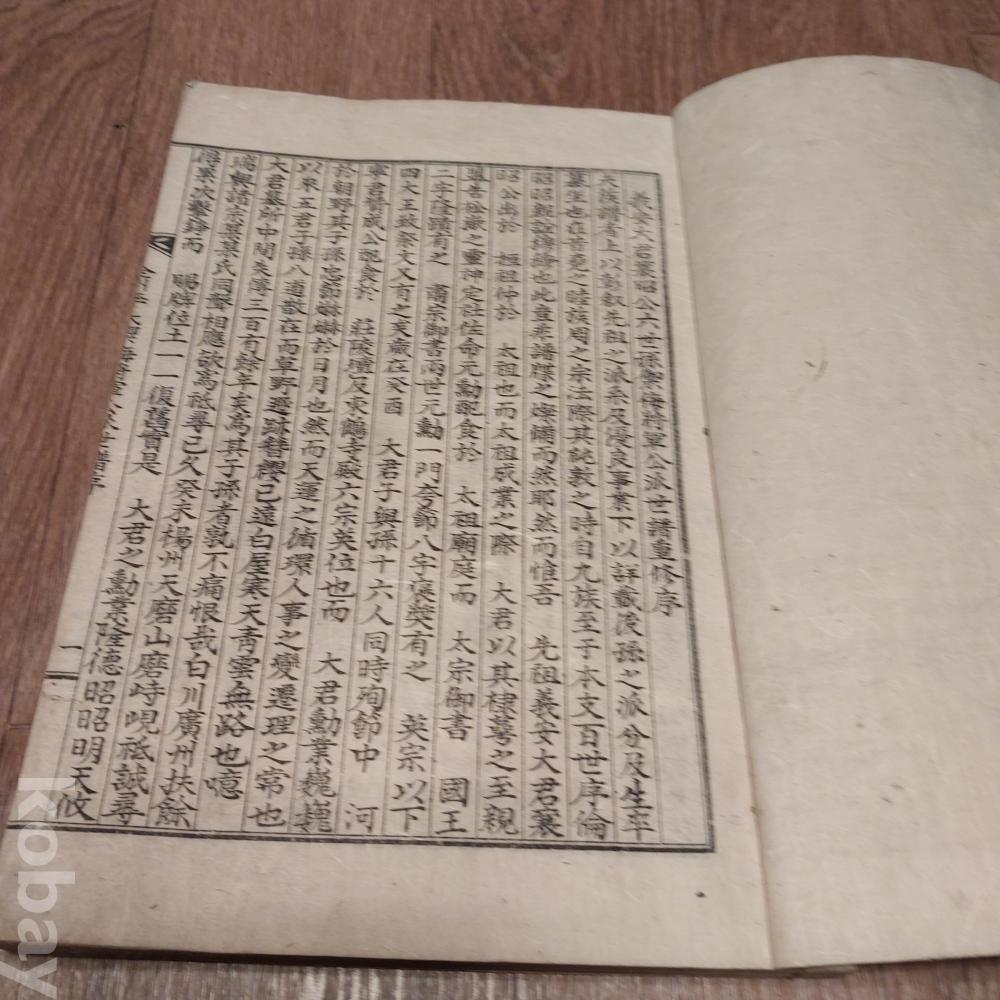 義安大君襄昭公六世孫禦侮將軍公派世譜重修序
夫族譜者上以彰敍先祖之派系及淩良事業下以詳載後孫之派分及生卒
墓坐也在昔堯之睦族周之宗法際其純敦之時自九族至于本支百世序倫
昭昭親誼綿綿也此豈非譜牒之燦爛而然耶然而惟吾 先祖義安大君襄
昭公出於 桓祖仲於 太祖也而太祖成業之際 大君以其棣萼之至親
松嶽之靈神定社佐命元勳配食於 太祖廟庭而 太宗御書 國王
二字隆蹟有之 肅宗御書兩世元勳一門夸節八字褒奬有之 英宗以下
四大王致祭文又有之矣歲在癸酉 大君子與孫十六人同時殉節中 河
寧君贊成公配食於 莊陵壇及東鶴寺殿六宗英位也而 大君勳業巍巍
於朝野其子孫忠節赫赫於日月也然而天運之循環人事之變遷理之常也
以來五君子孫八道散在而草野遯跡簪纓已遠白屋寒天靑雲無路也噫
大君墓所中間失傳三百有餘年玄爲其子孫者孰不痛恨哉白川廣州扶餘
瑞興諸宗某某氏同聲相應欲爲祗尋已久癸未楊州天磨山磨峙峴祗誠尋
得累次擊錚而 賜牌位土一一復舊實是 大君之勳業隆德昭昭明天攸
一
kobay